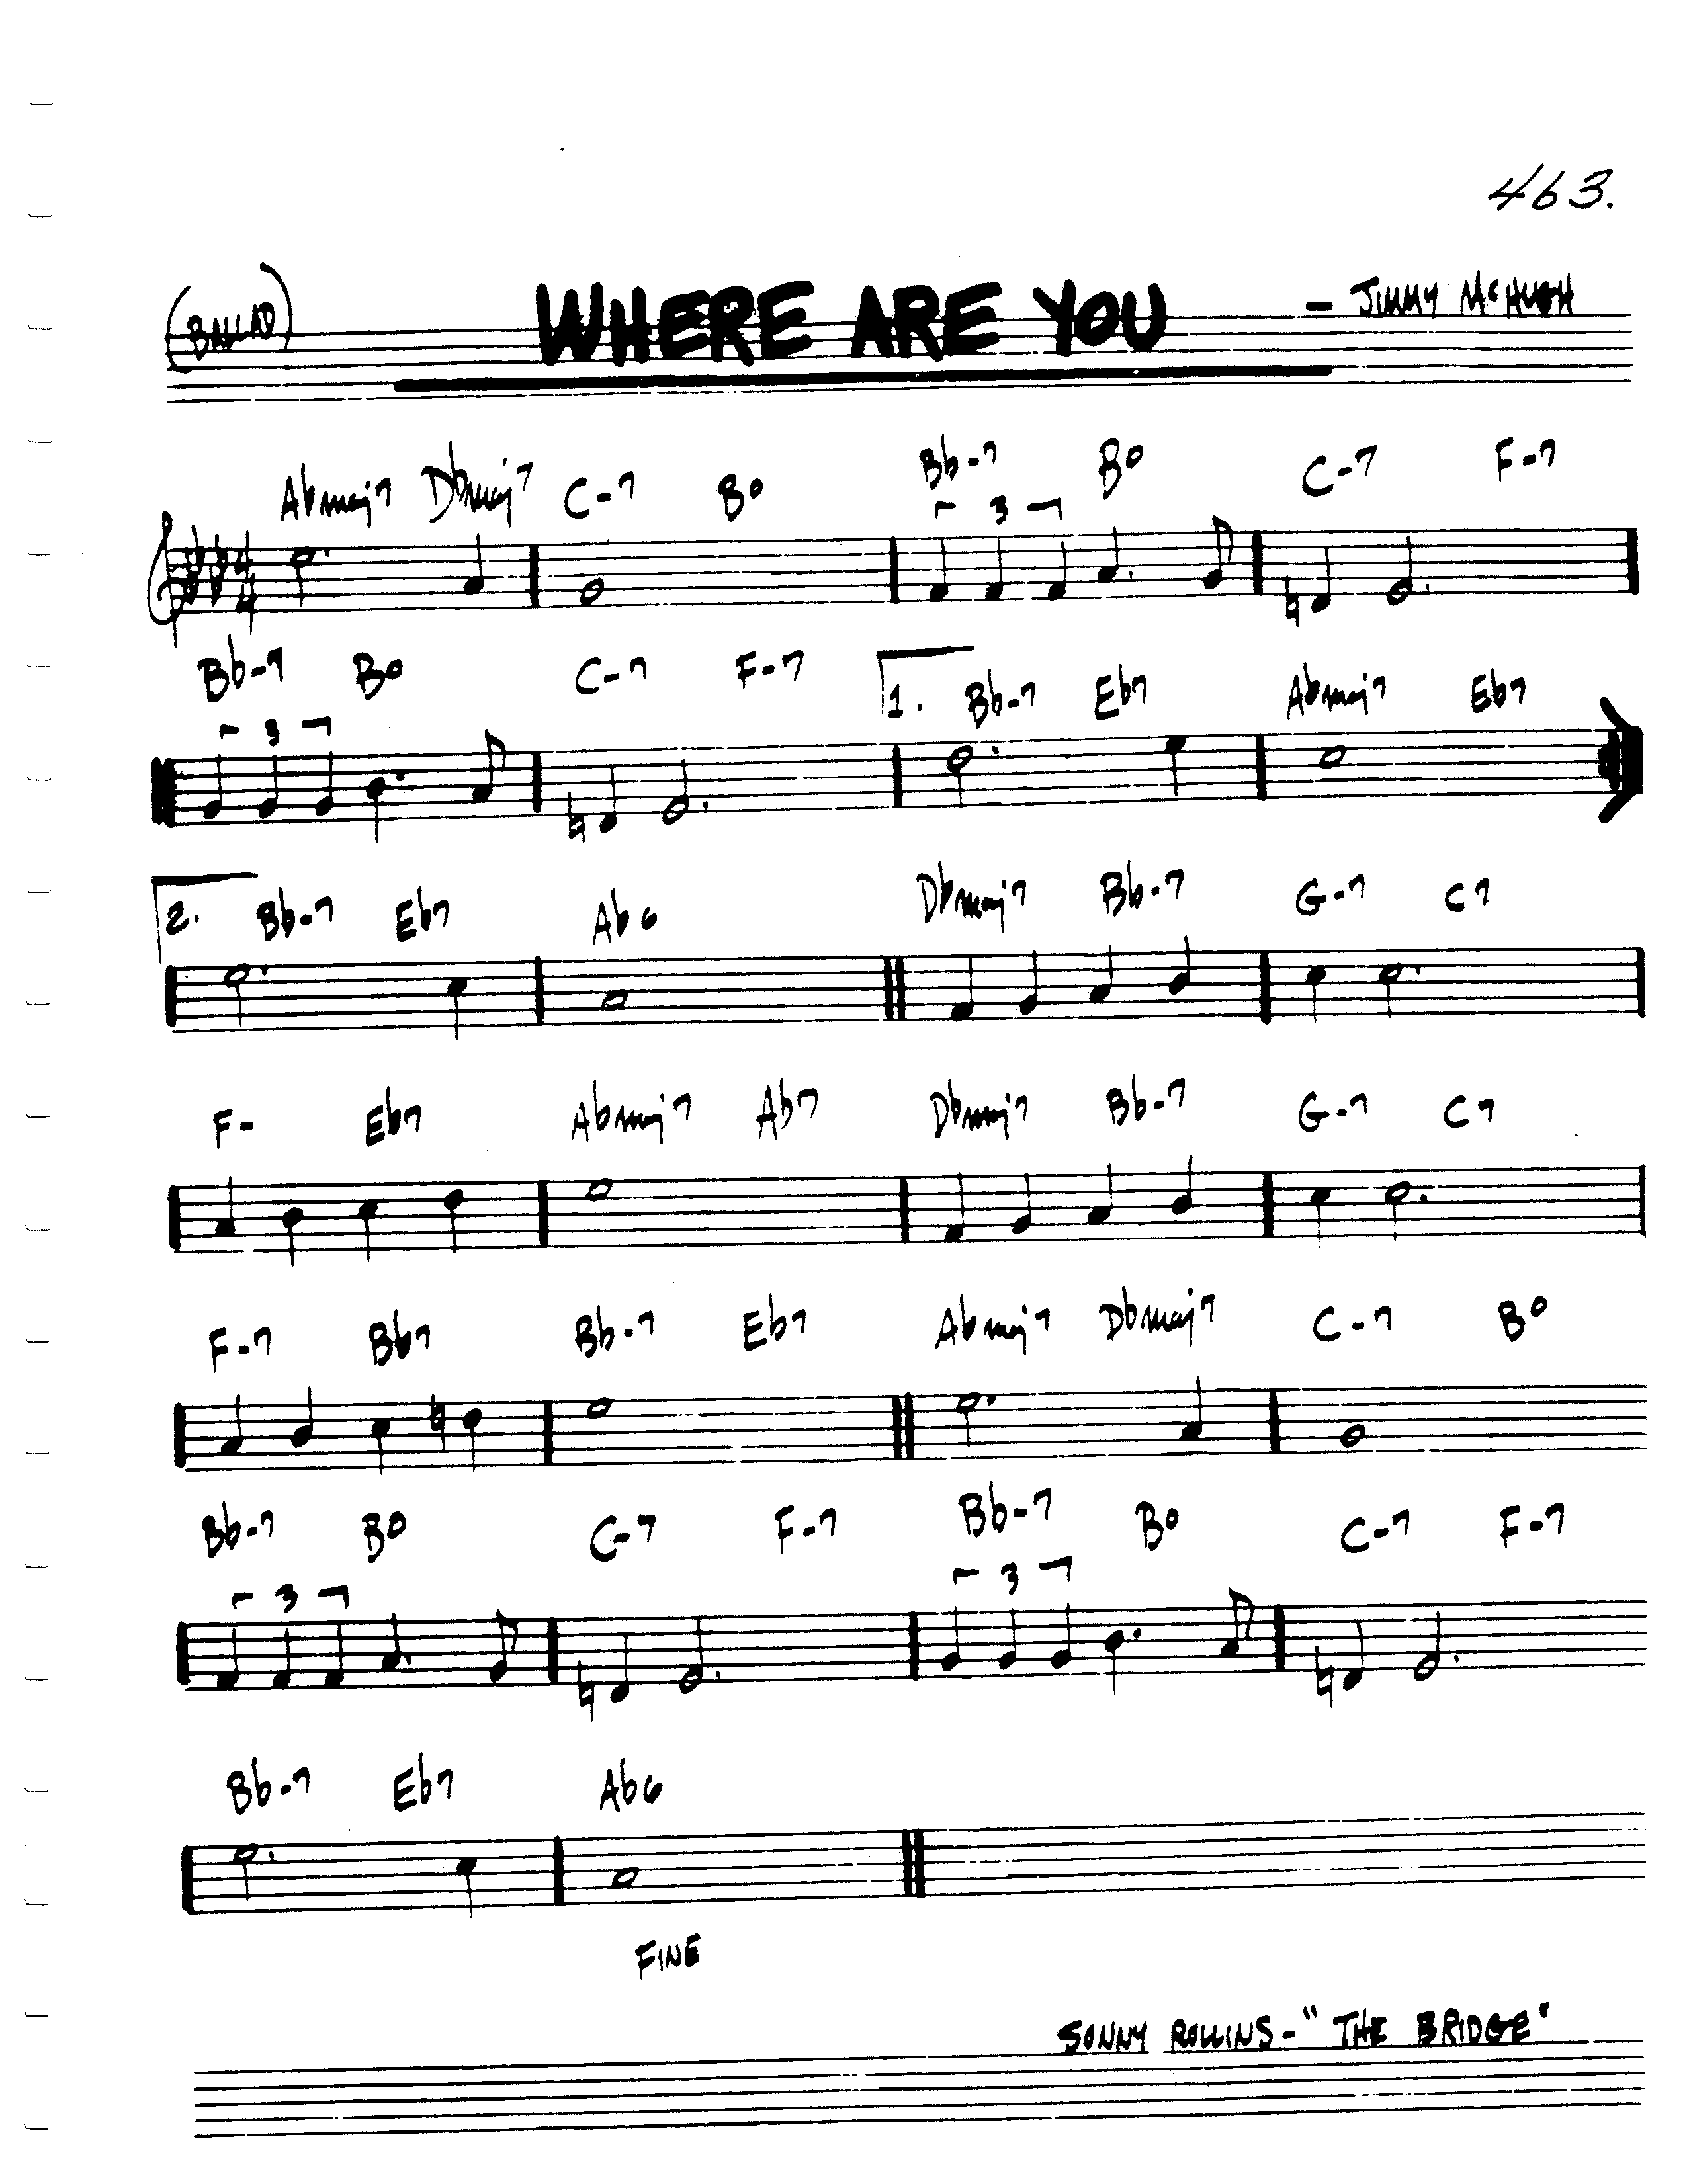 463.
(BALLAD) WHERE ARE YOU - JIMMY McHUGH
Abmaj7 Dbmaj7 C-7 Bo Bb-7 Bo C-7 F-7
4 4 3
Bb-7 Bo C-7 F-7 1. Bb-7 Eb7 Abmaj7 Eb7
3
2. Bb-7 Eb7 Ab6 Dbmaj7 Bb-7 G-7 C7
F- Eb7 Abmaj7 Ab7 Dbmaj7 Bb-7 G-7 C7
F-7 Bb7 Bb-7 Eb7 Abmaj7 Dbmaj7 C-7 Bo
Bb-7 Bo C-7 F-7 Bb-7 Bo C-7 F-7
3 3
Bb-7 Eb7 Ab6
FINE
SONNY ROLLINS - "THE BRIDGE"